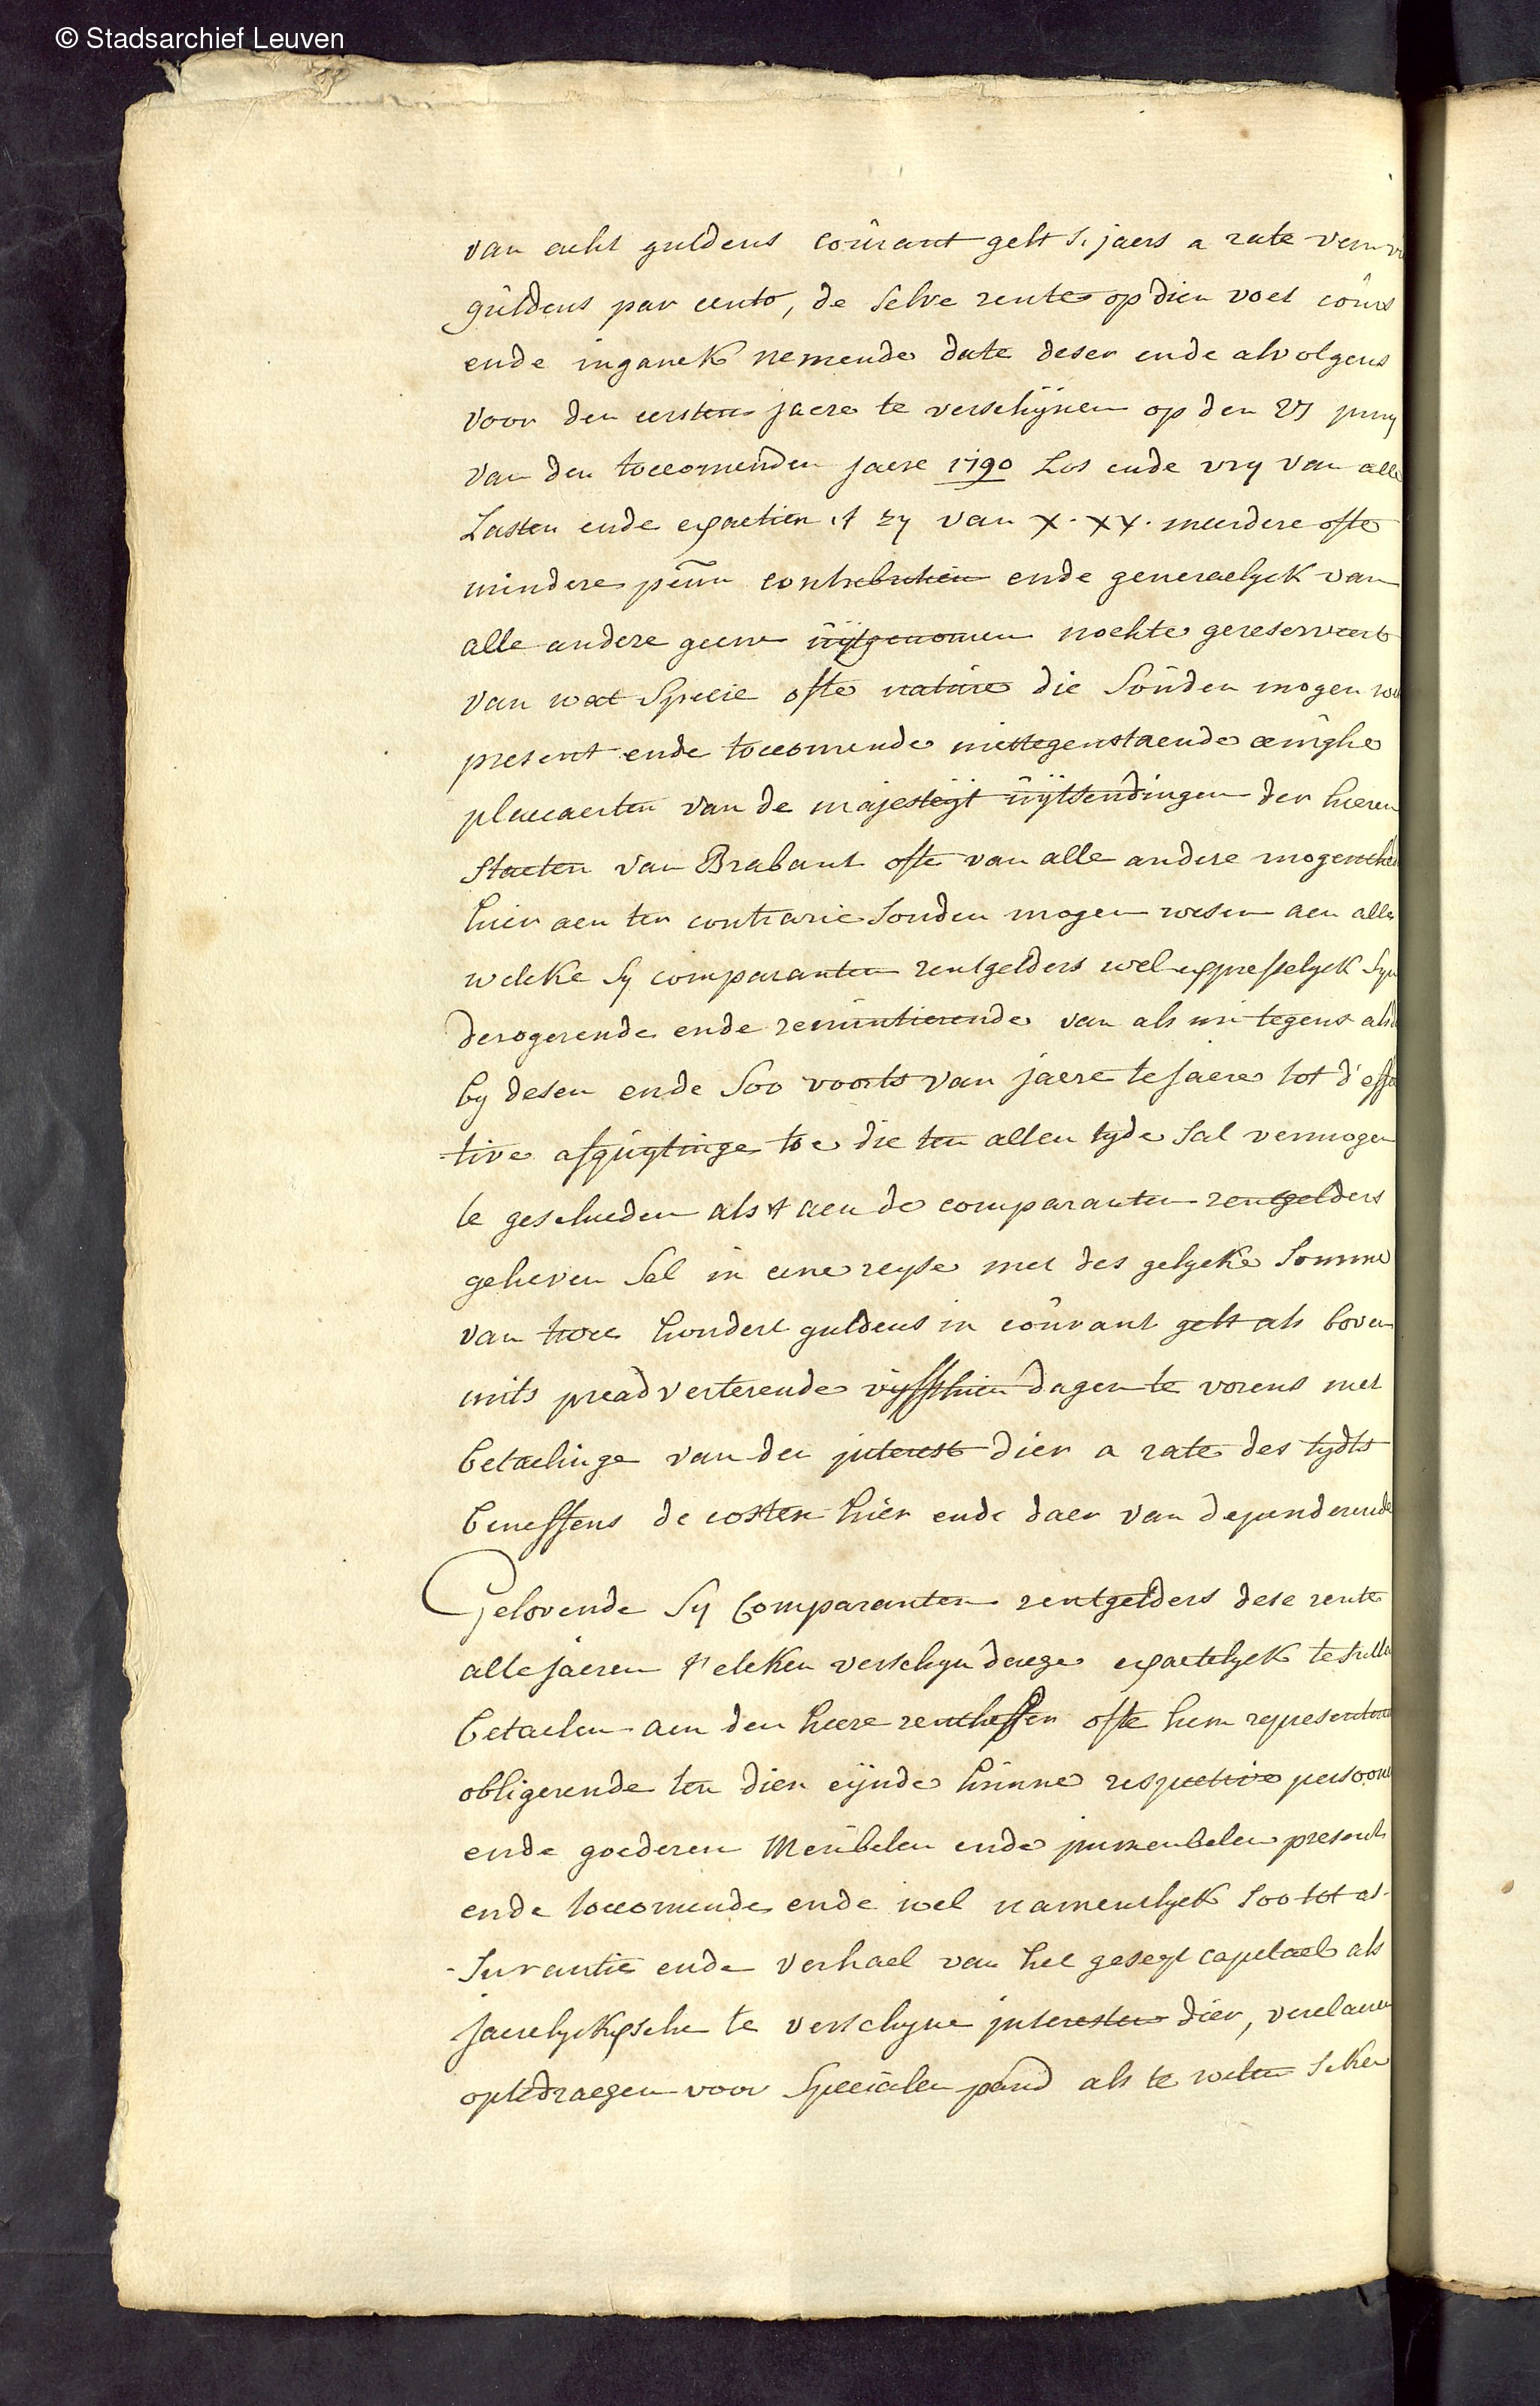 © Stadsarchief Leuven
van acht guldens coûrant gelt s'jaers a rate van
gûldens par cento, de selve rente op dien voet coûrs
ende inganck nemende date deser ende alvolgens
voor den eersten jaere te verschijnen op den 27 juny
van den toecomenden jaere 1790 Los ende vry van alle
Lasten ende exactien 't zy van X. XX. meerdere ofte
mindere penn contributien ende generaelyck van
alle andere geene ûijtgenomen nochte gereserveert
van wat Specie ofte natûre die soûden mogen
present ende toecomende niettegenstaende eenighe
placcaerten van de majesteijt ûijtsendingen der heeren
Staeten van Brabant ofte van alle andere mogenthe
hier aen ter contrarie souden mogen wesen aen alle
welcke sy comparanten rentgelders wel expresselyck syn
derogerende ende renûntierende van als nu tegens als
by desen ende soo voorts van jaere te jaere tot d'effec
-tive afquijtinge toe die ten allen tyde sal vermogen
te geschieden als 't aen de comparanten rentgelders
gelieven sal in eene reyse met des gelycke somme
van twee hondert guldens in coûrant gelt als boven
mits preadverterende vijffthien dagen te vorens met
betaelinge van den interest dier a rate des tydts
beneffens de costen hier ende daer van dependerende
Gelovende sy Comparanten rentgelders dese rente
alle jaeren t'elcken verschyn daege exactelyck te sullen
betaelen aen den heere rentheffer ofte hem representere
obligerende ten dien eijnde hûnne respective persoone
ende goederen Meûbelen ende immeubelen present
ende toecomende ende wel namentlyck soo tot as-
-surantie ende verhael van het geseyt capitael als
jaerelyckxsche te verschyne interesten dier, verclaeren
op te draegen voor Specialen pand als te weten seker